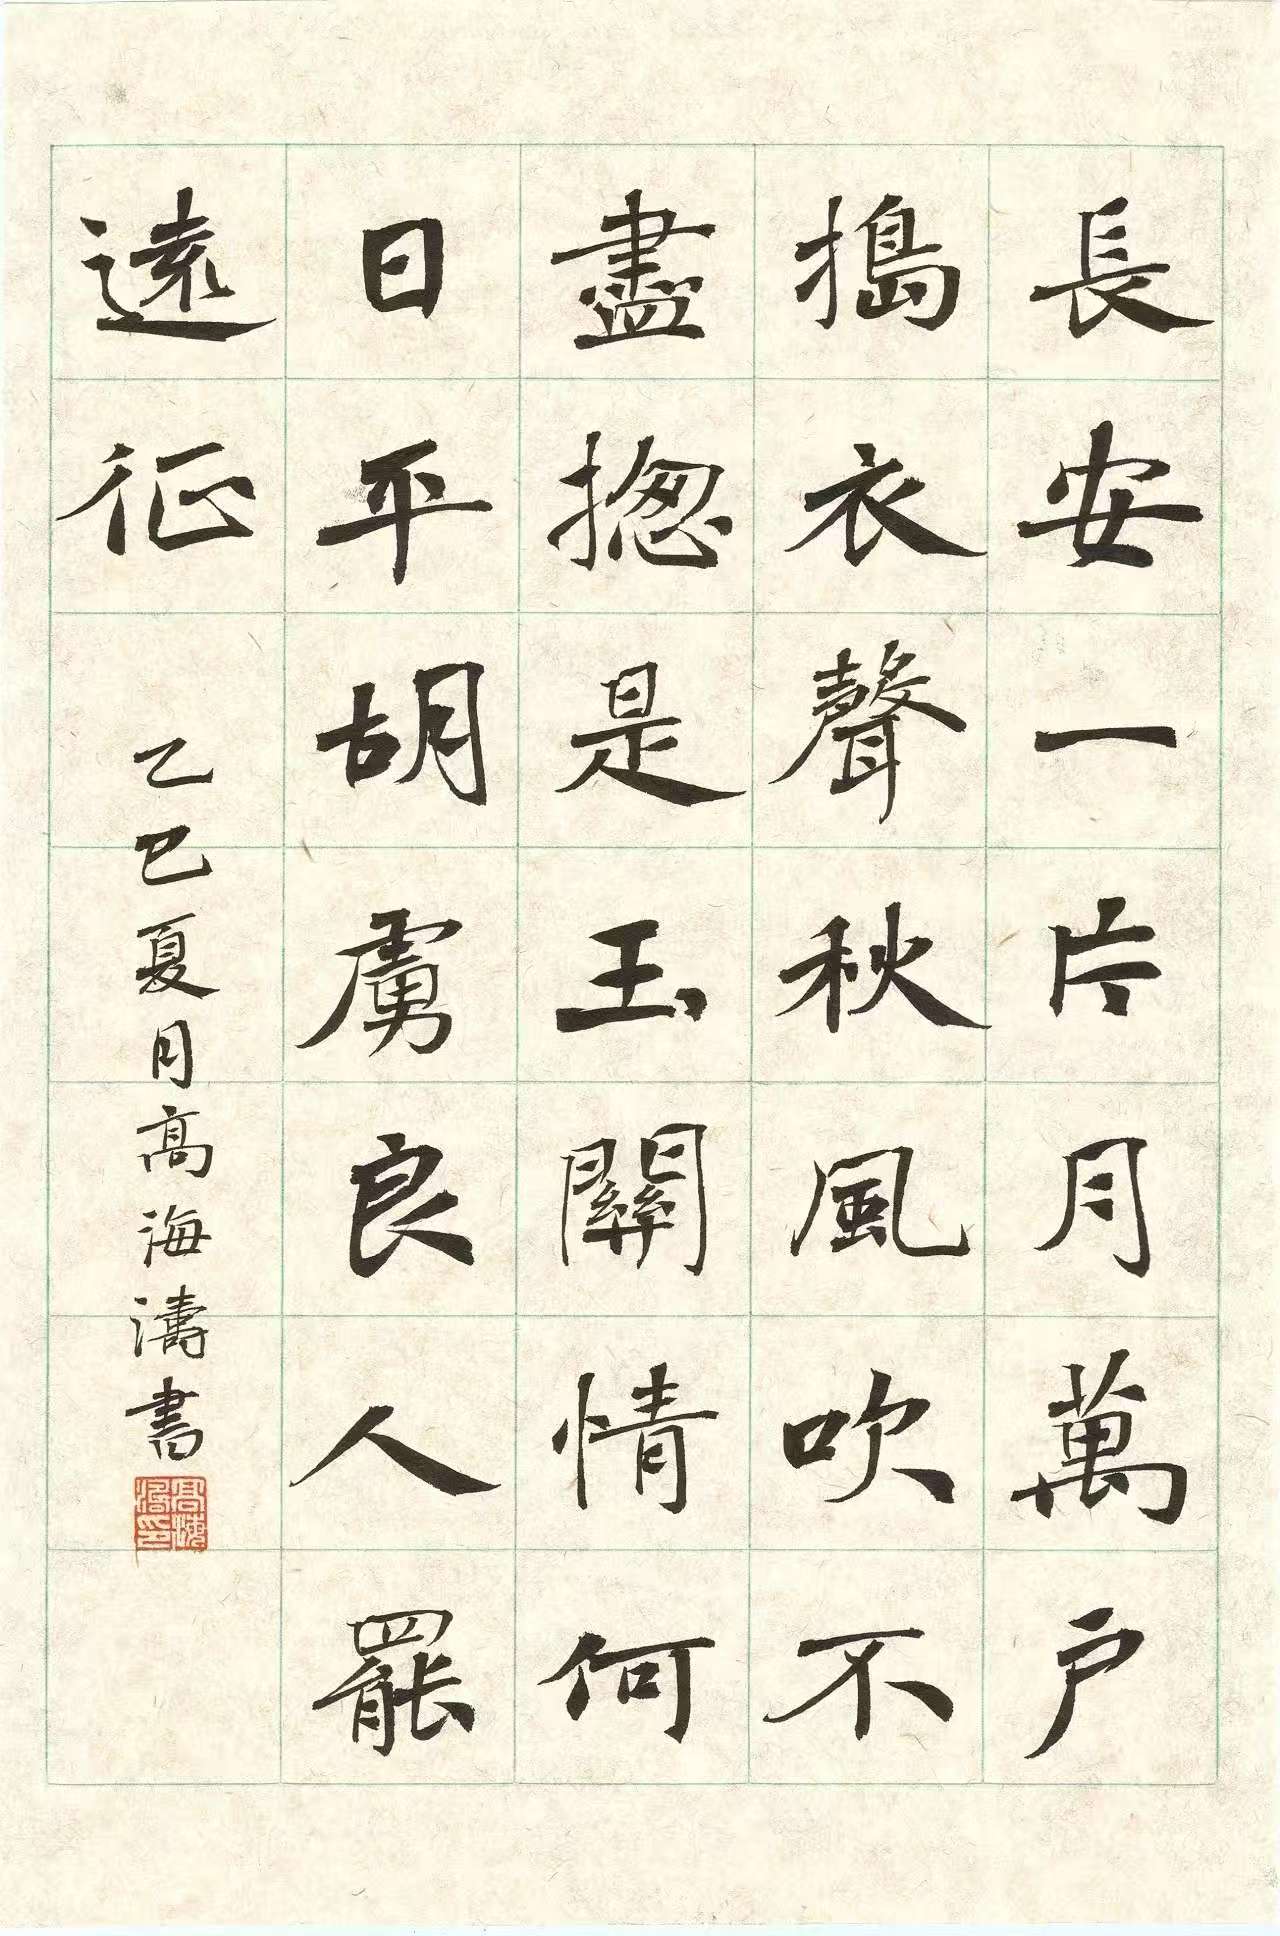 長安一片月萬户
搗衣聲秋風吹不
盡揔是玉關情何
日平胡虜良人罷
遠征
乙巳夏月高海濤書
高海濤印